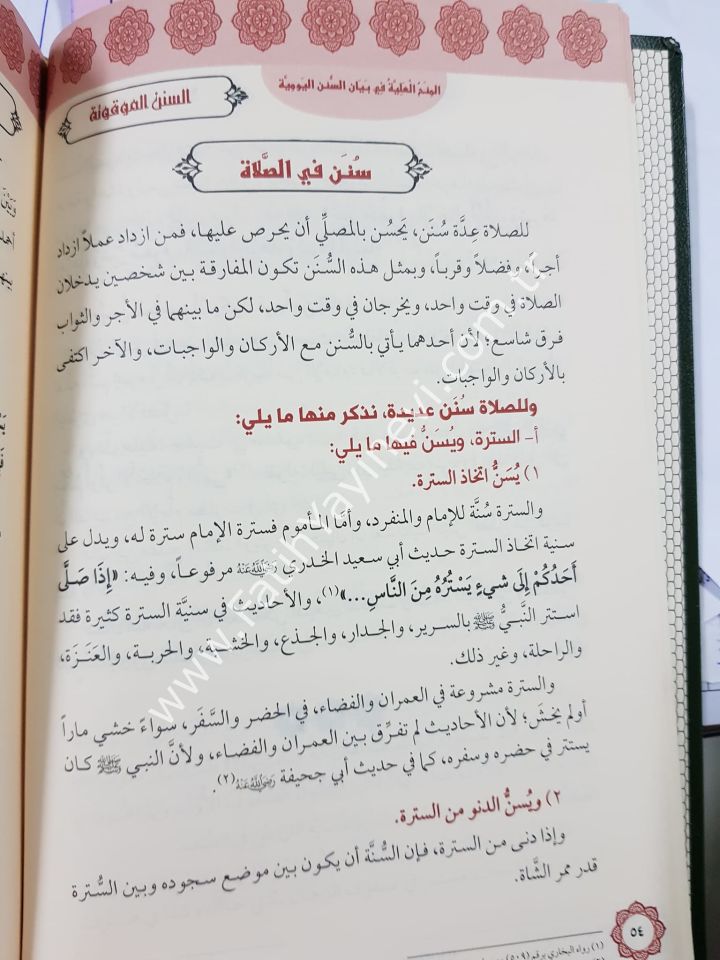 المِنَح العَليَّة في بَيان السُّنن اليَوميَّة
السنن الموقوتة
سُنَن في الصَّلاة
للصلاة عِدَّة سُنَن، يَحسُن بالمصلِّي أن يحرص عليها، فمن ازداد عملاً ازداد
أجراً، وفضلاً وقرباً، وبمثل هذه السُّنَن تكون المفارقة بين شخصين يدخلان
الصلاة في وقت واحد، ويخرجان في وقت واحد، لكن ما بينهما في الأجر والثواب
فرق شاسع؛ لأن أحدهما يأتي بالسُّنن مع الأركان والواجبات، والآخر اكتفى
بالأركان والواجبات.
وللصلاة سُنَن عديدة، نذكر منها ما يلي:
أ- السترة، ويُسَنُّ فيها ما يلي:
١) يُسَنُّ اتخاذ السترة.
والسترة سُنَّة للإمام والمنفرد، وأمَّا المأموم فسترة الإمام سترة له، ويدل على
سنية اتخاذ السترة حديث أبي سعيد الخدري رَضِيَ اللَّهُ عَنْهُ مرفوعاً، وفيه: «إِذَا صَلَّى
أَحَدُكُمْ إِلَى شَيءٍ يَسْتُرُهُ مِنَ النَّاسِ...»(١)، والأحاديث في سنيَّة السترة كثيرة فقد
استتر النَّبيُّ ﷺ بالسرير، والجدار، والجذع، والخشبة، والحربة، والعَنَزَة،
والراحلة، وغير ذلك.
والسترة مشروعة في العمران والفضاء، في الحضر والسَّفَر، سواءً خشي ماراً
أولم يخشَ؛ لأن الأحاديث لم تفرِّق بين العمران والفضاء، ولأنَّ النبي ﷺ كان
يستتر في حضره وسفره، كما في حديث أبي جحيفة رَضِيَ اللَّهُ عَنْهُ(٢).
٢) ويُسنُّ الدنو من السترة.
وإذا دنى من السترة، فإن السُّنَّة أن يكون بين موضع سجوده وبين السُّترة
قدر ممر الشَّاة.
٥٤
(١) رواه البخاري برقم (٥٠٩)
www.FatihYayinevi.com.tr